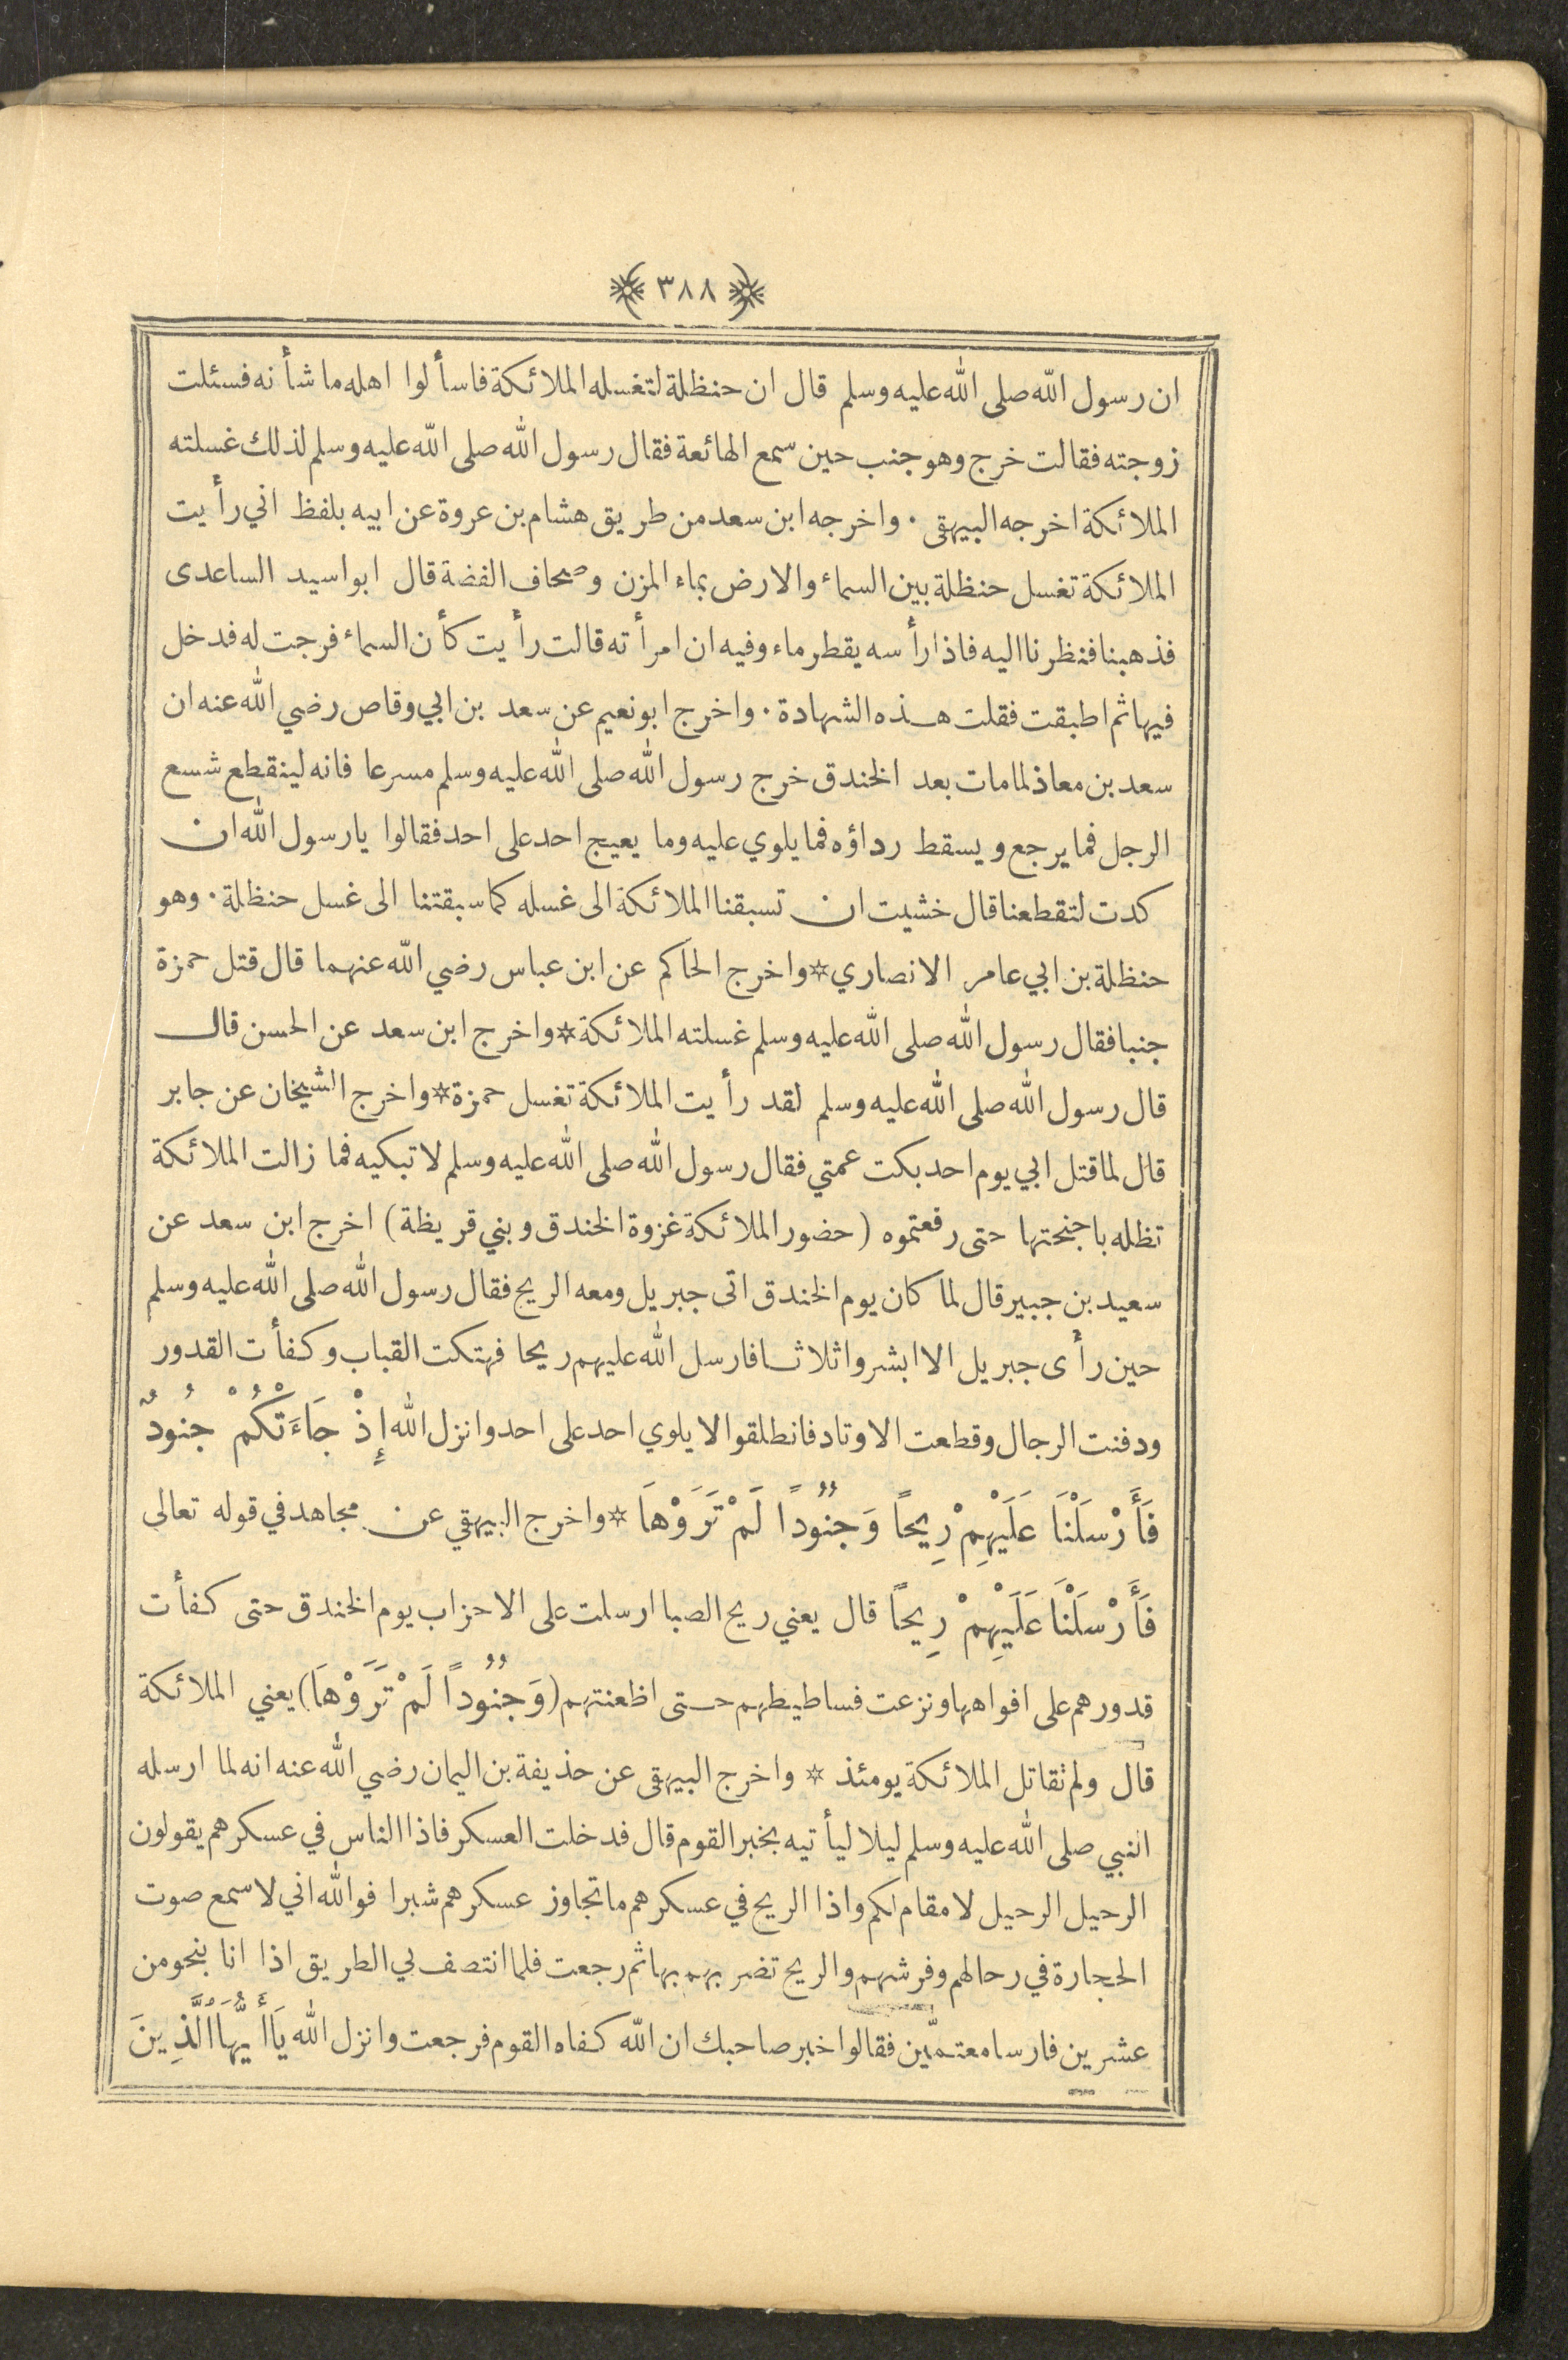 ٣٨٨
ان رسول الله صلى الله عليه وسلم قال ان حنظلة لتغسله الملائكة فاسألوا اهله ما شأنه فسئلت
زوجته فقالت خرج وهو جنب حين سمع الهائعة فقال رسول الله صلى الله عليه وسلم لذلك غسلته
الملائكة اخرجه البيهقى . واخرجه ابن سعد من طريق هشام بن عروة عن ابيه بلفظ اني رأيت
الملائكة تغسل حنظلة بين السماء والارض بماء المزن وصحاف الفضة قال ابو اسيد الساعدى
فذهبنا فنظرنا اليه فاذا رأسه يقطر ماء وفيه ان امرأته قالت رأيت كأن السماء فرجت له فدخل
فيها ثم اطبقت فقلت هذه الشهادة . واخرج ابو نعيم عن سعد بن ابي وقاص رضي الله عنه ان
سعد بن معاذ لما مات بعد الخندق خرج رسول الله صلى الله عليه وسلم مسرعا فانه لينقطع شسع
الرجل فما يرجع ويسقط رداؤه فما يلوي عليه وما يعيج احد على احد فقالوا يا رسول الله ان
كدت لتقطعنا قال خشيت ان تسبقنا الملائكة الى غسله كما سبقتنا الى غسل حنظلة . وهو
حنظلة بن ابي عامر الانصاري * واخرج الحاكم عن ابن عباس رضي الله عنهما قال قتل حمزة
جنبا فقال رسول الله صلى الله عليه وسلم غسلته الملائكة * واخرج ابن سعد عن الحسن قال
قال رسول الله صلى الله عليه وسلم لقد رأيت الملائكة تغسل حمزة * واخرج الشيخان عن جابر
قال لما قتل ابي يوم احد بكت عمتي فقال رسول الله صلى الله عليه وسلم لا تبكيه فما زالت الملائكة
تظله باجنحتها حتى رفعتموه ( حضور الملائكة غزوة الخندق وبني قريظة ) اخرج ابن سعد عن
سعيد بن جبير قال لما كان يوم الخندق اتى جبريل ومعه الريح فقال رسول الله صلى الله عليه وسلم
حين رأى جبريل الا ابشروا ثلاثا فارسل الله عليهم ريحا فهتكت القباب وكفأت القدور
ودفنت الرجال وقطعت الاوتاد فانطلقوا لا يلوي احد على احد وانزل الله إِذْ جَاءَتْكُمْ جُنُودٌ
فَأَرْسَلْنَا عَلَيْهِمْ رِيحًا وَجُنُودًا لَمْ تَرَوْهَا * واخرج البيهقي عن مجاهد في قوله تعالى
فَأَرْسَلْنَا عَلَيْهِمْ رِيحًا قال يعني ريح الصبا ارسلت على الاحزاب يوم الخندق حتى كفأت
قدورهم على افواهها ونزعت فساطيطهم حتى اظعنتهم (وَجُنُودًا لَمْ تَرَوْهَا) يعني الملائكة
قال ولم تقاتل الملائكة يومئذ * واخرج البيهقى عن حذيفة بن اليمان رضي الله عنه انه لما ارسله
النبي صلى الله عليه وسلم ليلا ليأتيه بخبر القوم قال فدخلت العسكر فاذا الناس في عسكرهم يقولون
الرحيل الرحيل لا مقام لكم واذا الريح في عسكرهم ما تجاوز عسكرهم شبرا فوالله اني لاسمع صوت
الحجارة في رحالهم وفرشهم والريح تضربهم بها ثم رجعت فلما انتصف بي الطريق اذا انا بنحو من
عشرين فارسا معتمّين فقالوا اخبر صاحبك ان الله كفاه القوم فرجعت وانزل الله يَاأَيُّهَا ٱلَّذِينَ